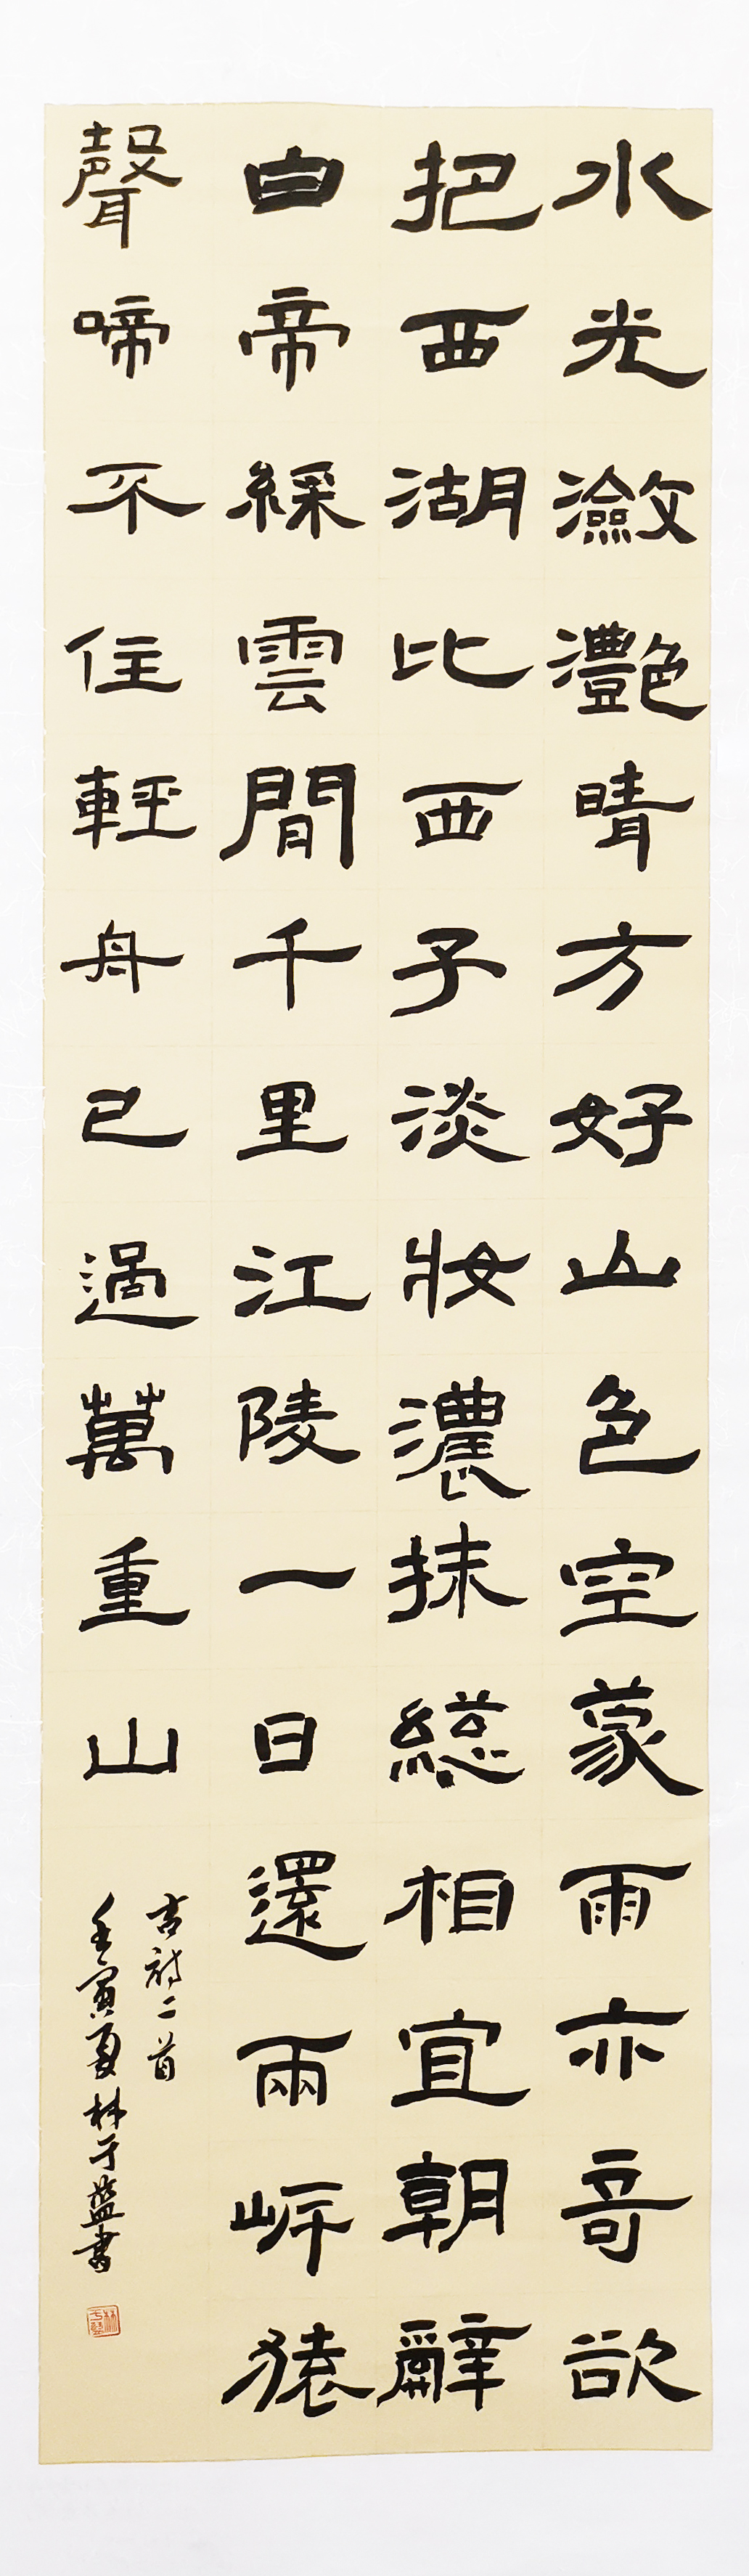 水光瀲灧晴方好山色空蒙雨亦奇欲
把西湖比西子淡妝濃抹總相宜朝辭
白帝綵雲閒千里江陵一日還兩岸猿
聲啼不住輕舟已過萬重山
古詩二首
壬寅夏林于書